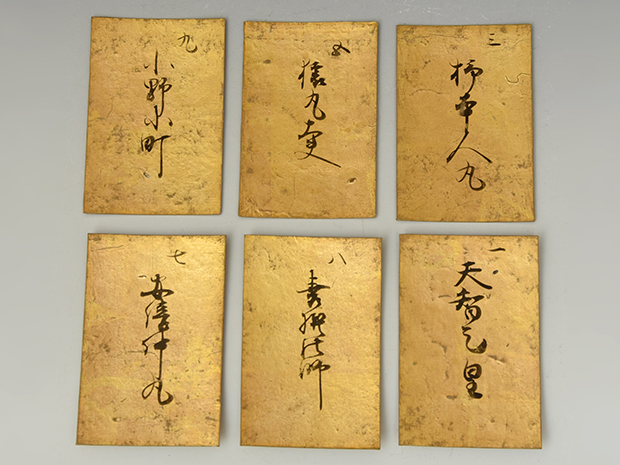 三
柿本人丸
五
猿丸大夫
九
小野小町
一
天智天皇
八
喜撰法師
七
安倍仲丸